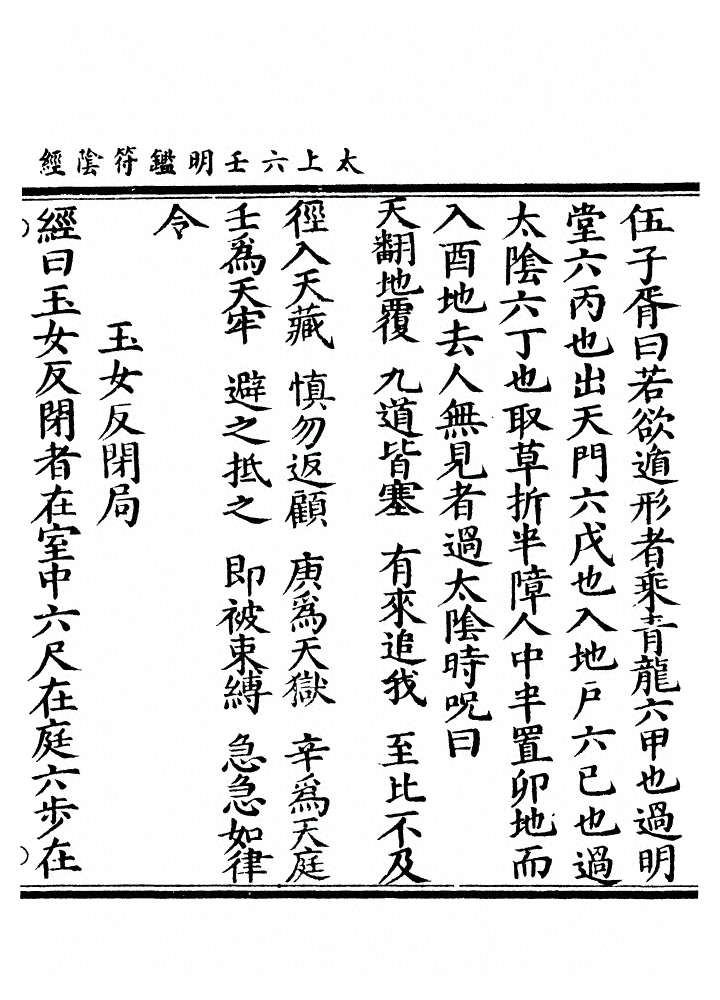 太上六壬明鑑符陰經
伍子胥曰若欲遁形者乘青龍六甲也過明
堂六丙也出天門六戊也入地戶六己也過
太陰六丁也取草折半障人中半置卯地而
入酉地去人無見者過太陰時呪曰
天翻地覆 九道皆塞 有來追我 至比不及
徑入天藏 慎勿返顧 庚為天獄 辛為天庭
壬為天牢 避之抵之 即被束縛 急急如律
令
玉女反閉局
經曰玉女反閉者在室中六尺在庭六步在